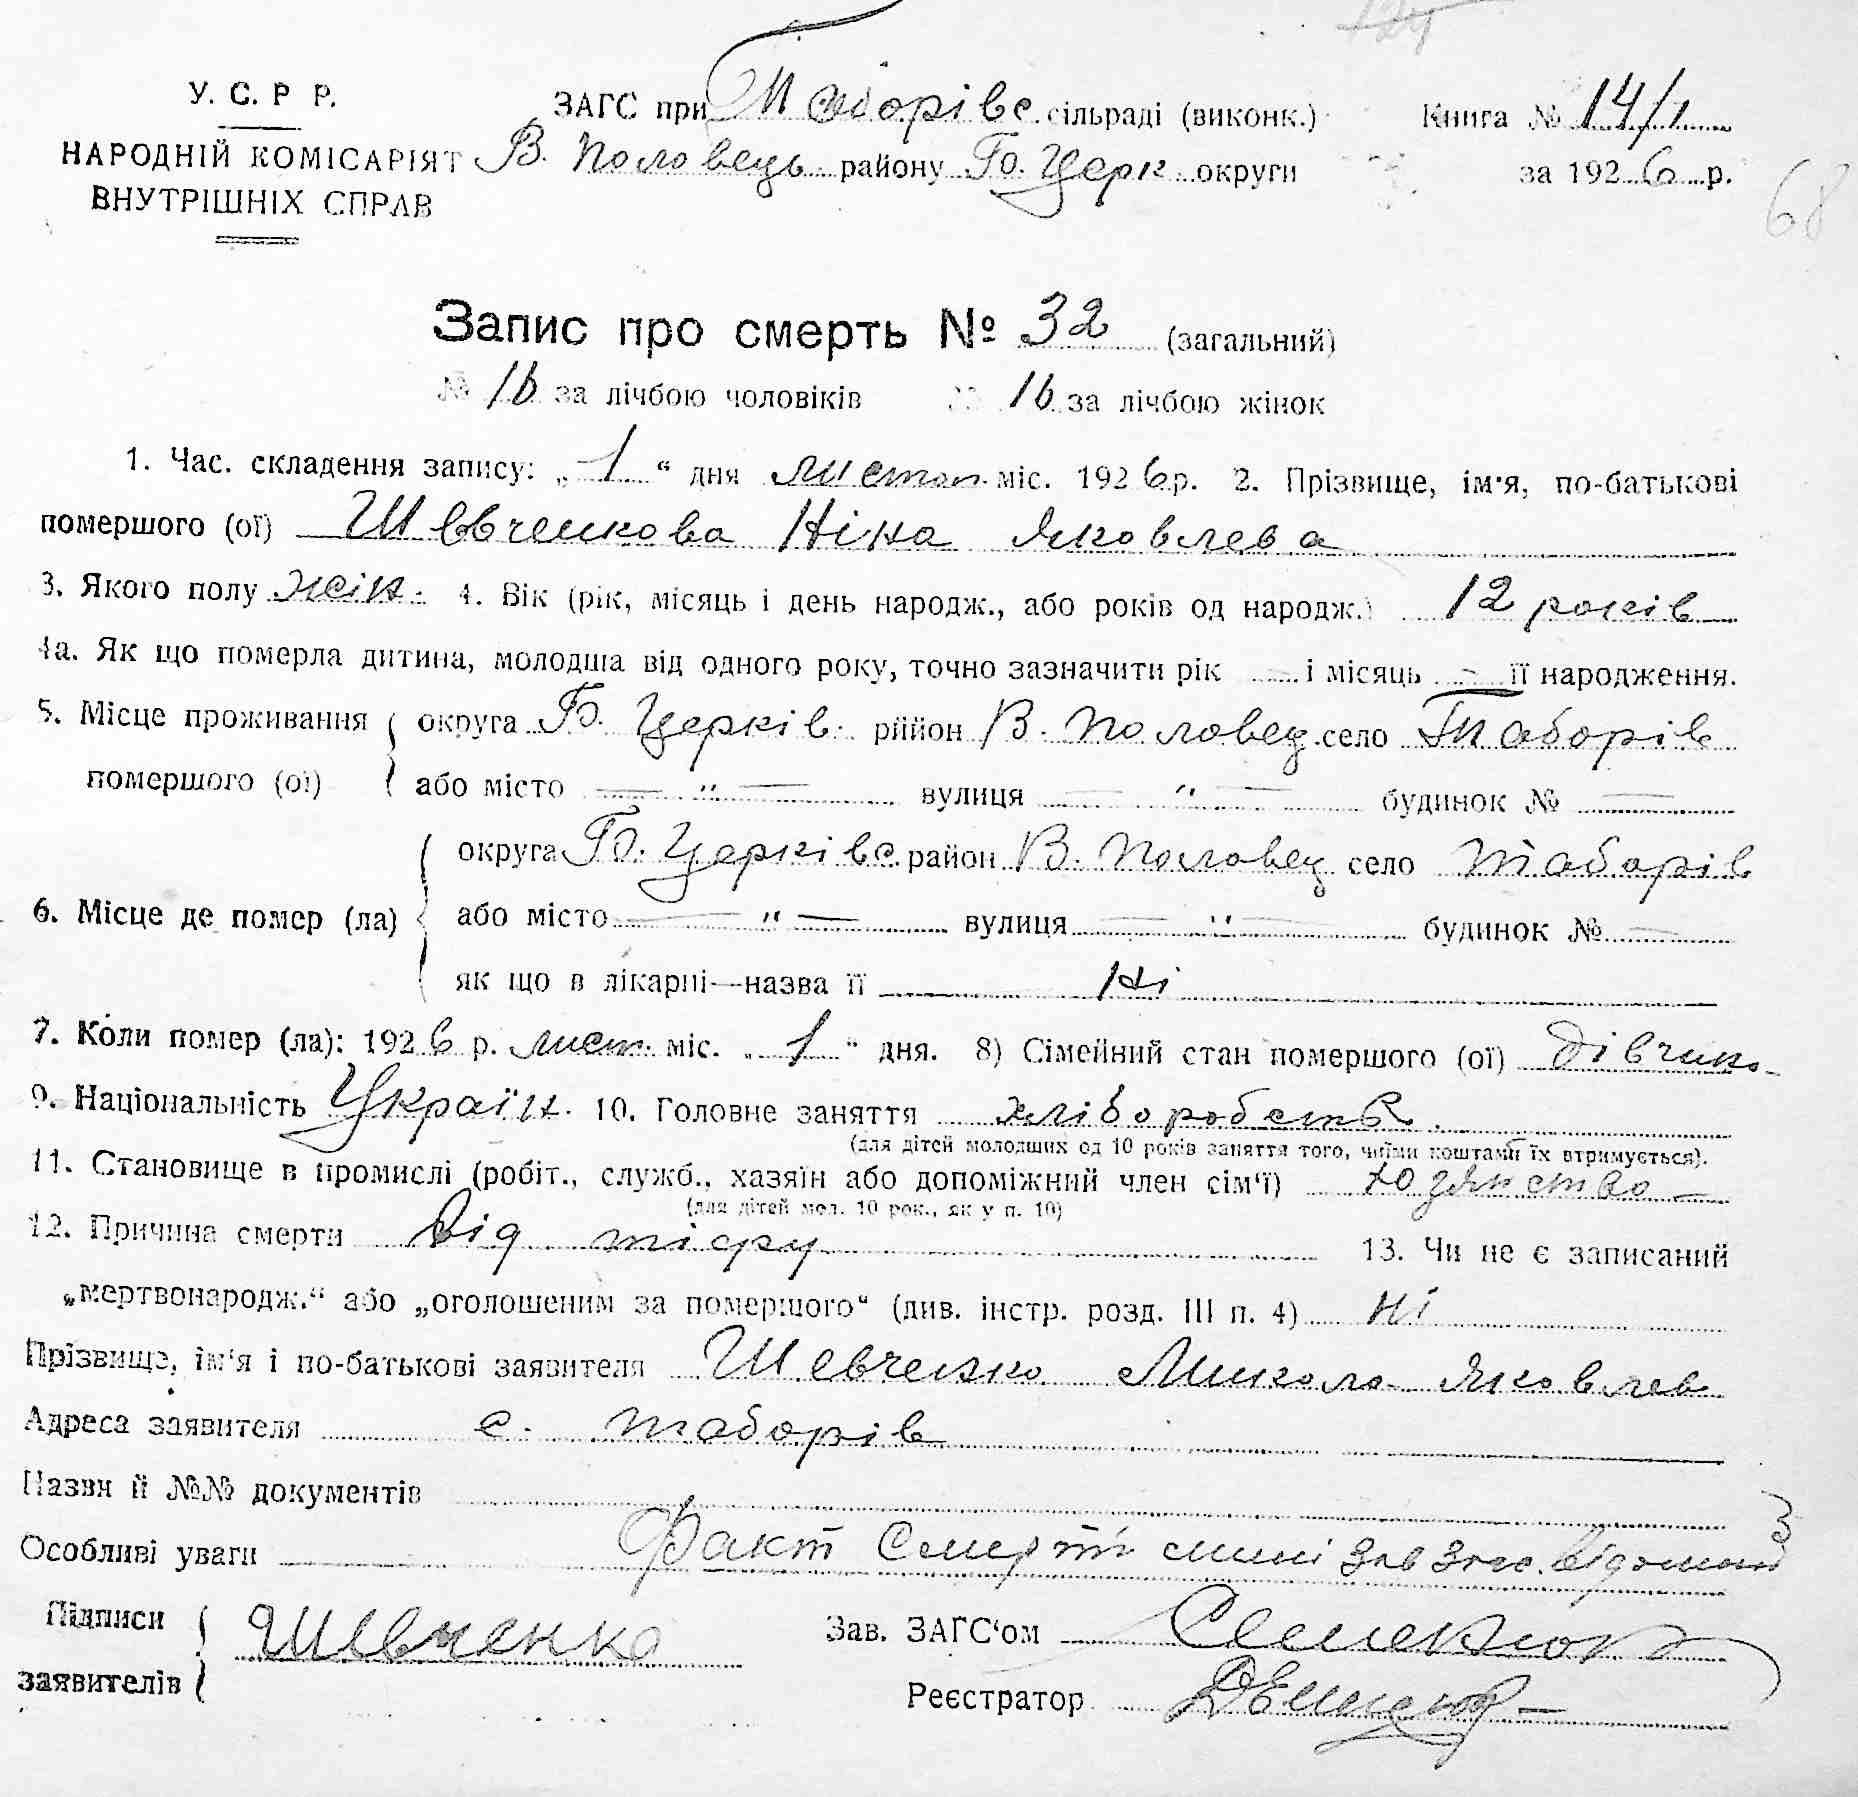 У. С. Р Р.
НАРОДНІЙ КОМІСАРІЯТ
ВНУТРІШНІХ СПРАВ
ЗАГС при Таборівс. сільраді (виконк.)
В. Половець району Б. Церк округи
Книга № 14/1
за 1926 р.
68
Запис про смерть № 32 (загальний)
№ 16 за лічбою чоловіків № 16 за лічбою жінок
1. Час. складення запису: „1“ дня листоп. міс. 1926 р. 2. Прізвище, ім'я, по-батькові
помершого (ої) Шевченкова Ніна Яковлева
3. Якого полу жін. 4. Вік (рік, місяць і день народж., або років од народж.) 12 років
4а. Як що померла дитина, молодша від одного року, точно зазначити рік — і місяць — її народження.
5. Місце проживання помершого (ої) округа Б. Церків. район В. Половец. село Таборів
або місто — „ — вулиця — „ — будинок № —
6. Місце де помер (ла) округа Б. Церківс. район В. Половец село Таборів
або місто — „ — вулиця — „ — будинок № —
як що в лікарні—назва її Ні
7. Коли помер (ла): 1926 р. лист. міс. „1“ дня. 8) Сімейний стан помершого (ої) дівчина
9. Національність Україн. 10. Головне заняття хліборобств.
(для дітей молодших од 10 років заняття того, чиїми коштами їх втримується).
11. Становище в промислі (робіт., служб., хазяїн або допоміжний член сім'ї) хозяйство —
(для дітей мол. 10 рок., як у п. 10)
12. Причина смерти Від тіфу 13. Чи не є записаний
„мертвонародж.“ або „оголошеним за помершого“ (див. інстр. розд. III п. 4) Ні
Прізвище, ім'я і по-батькові заявителя Шевченко Микола Яковлев
Адреса заявителя с. Таборів
Назви й №№ документів
Особливі уваги Факт Смерті мині Зав Загс. відомий
Підписи заявителів Шевченко
Зав. ЗАГС'ом
Реєстратор